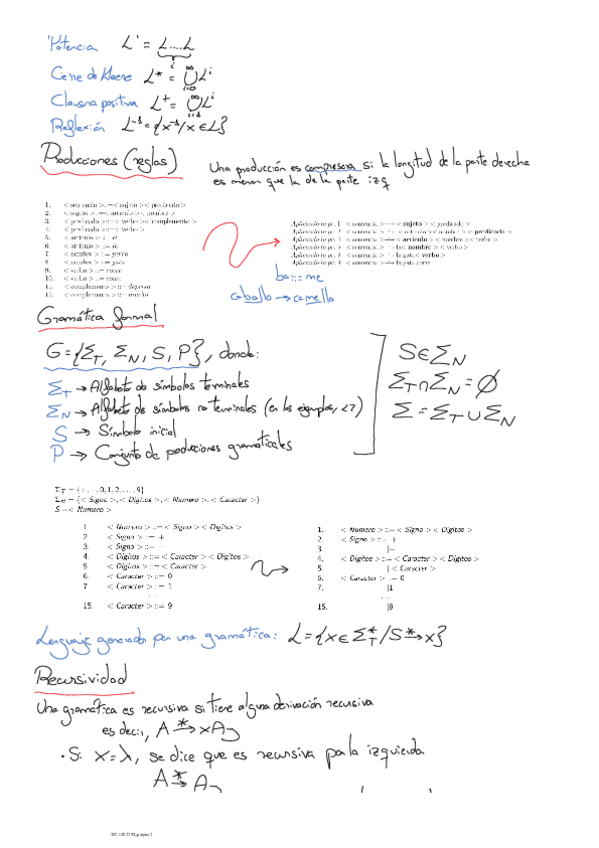 Potencia L^i = L....L
i
Cierre de Kleene L* = ∞⋃i=0 L^i
Clausura positiva L+ = ∞⋃i=1 L^i
Reflexión L^-1 = {x^-1/x ∈ L}
Producciones (reglas)
Una producción es compresora si la longitud de la parte derecha
es menor que la de la parte izq
1. < sentencia > ::= < sujeto > < predicado >
2. < sujeto > ::= < articulo > < nombre >
3. < predicado > ::= < verbo > < complemento >
4. < predicado > ::= < verbo >
5. < articulo > ::= el
6. < articulo > ::= la
7. < nombre > ::= perro
8. < nombre > ::= gato
9. < verbo > ::=
10. < verbo > ::=
11. < complemento > ::= deprisa
12. < complemento > ::= mucho
< sentencia > → < sujeto > < predicado >
< articulo > < nombre > < predicado >
< articulo > < nombre > < verbo >
< nombre > < verbo >
< verbo >
ba ::= me
caballo → camello
Gramática formal
G = {Σ_T, Σ_N, S, P}, donde:
Σ_T → Alfabeto de símbolos terminales
Σ_N → Alfabeto de símbolos no terminales (en los ejemplos, <>)
S → Símbolo inicial
P → Conjunto de producciones gramaticales
S ∈ Σ_N
Σ_T ∩ Σ_N = ∅
Σ = Σ_T ∪ Σ_N
Σ_T = {+, -, 0, 1, 2, ..., 9}
Σ_N = {< Signo >, < Digitos >, < Numero >, < Caracter >}
S = < Numero >
1. < Numero > ::= < Signo > < Digitos >
2. < Signo > ::= +
3. < Signo > ::= -
4. < Digitos > ::= < Caracter > < Digitos >
5. < Digitos > ::= < Caracter >
6. < Caracter > ::= 0
7. < Caracter > ::= 1
...
15. < Caracter > ::= 9
1. < Numero > ::= < Signo > < Digitos >
2. < Signo > ::= +
3. |-
4. < Digitos > ::= < Caracter > < Digitos >
5. | < Caracter >
6. < Caracter > ::= 0
7. |1
...
15. |9
Lenguaje generado por una gramática: L = {x ∈ Σ_T* / S →* x}
Recursividad
Una gramática es recursiva si tiene alguna derivación recursiva
es decir, A →* xAy
· Si x = λ, se dice que es recursiva por la izquierda
A →* Ay